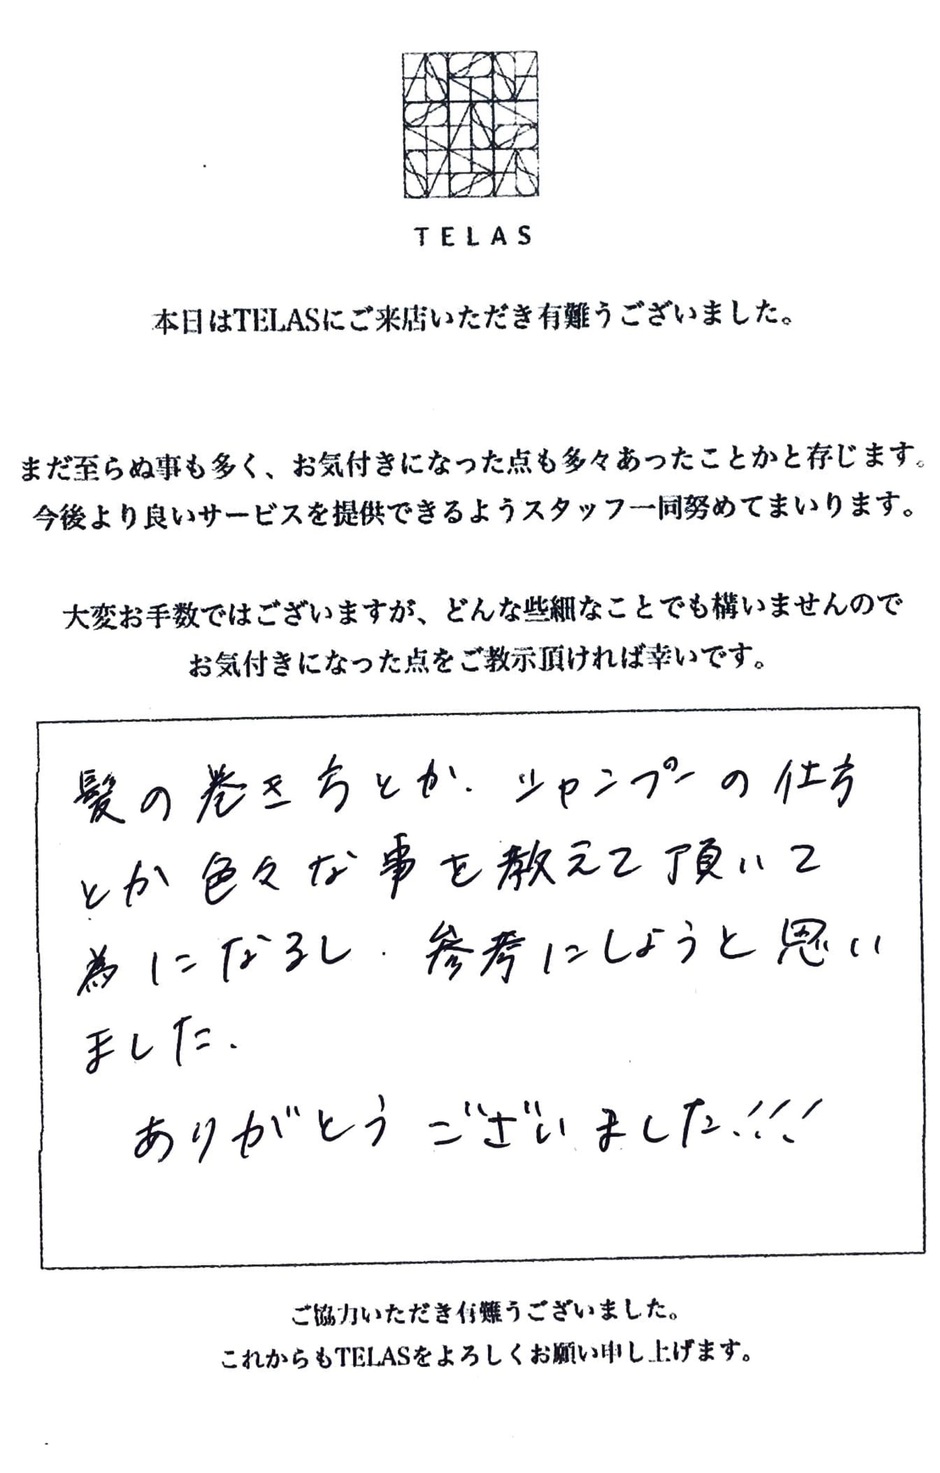 TELAS
本日はTELASにご来店いただき有難うございました。
まだ至らぬ事も多く、お気付きになった点も多々あったことかと存じます。
今後より良いサービスを提供できるようスタッフ一同努めてまいります。
大変お手数ではございますが、どんな些細なことでも構いませんので
お気付きになった点をご教示頂ければ幸いです。
髪の巻き方とか、シャンプーの仕方
とか色々な事を教えて頂いて
為になるし、参考にしようと思い
ました。
ありがとうございました!!!
ご協力いただき有難うございました。
これからもTELASをよろしくお願い申し上げます。